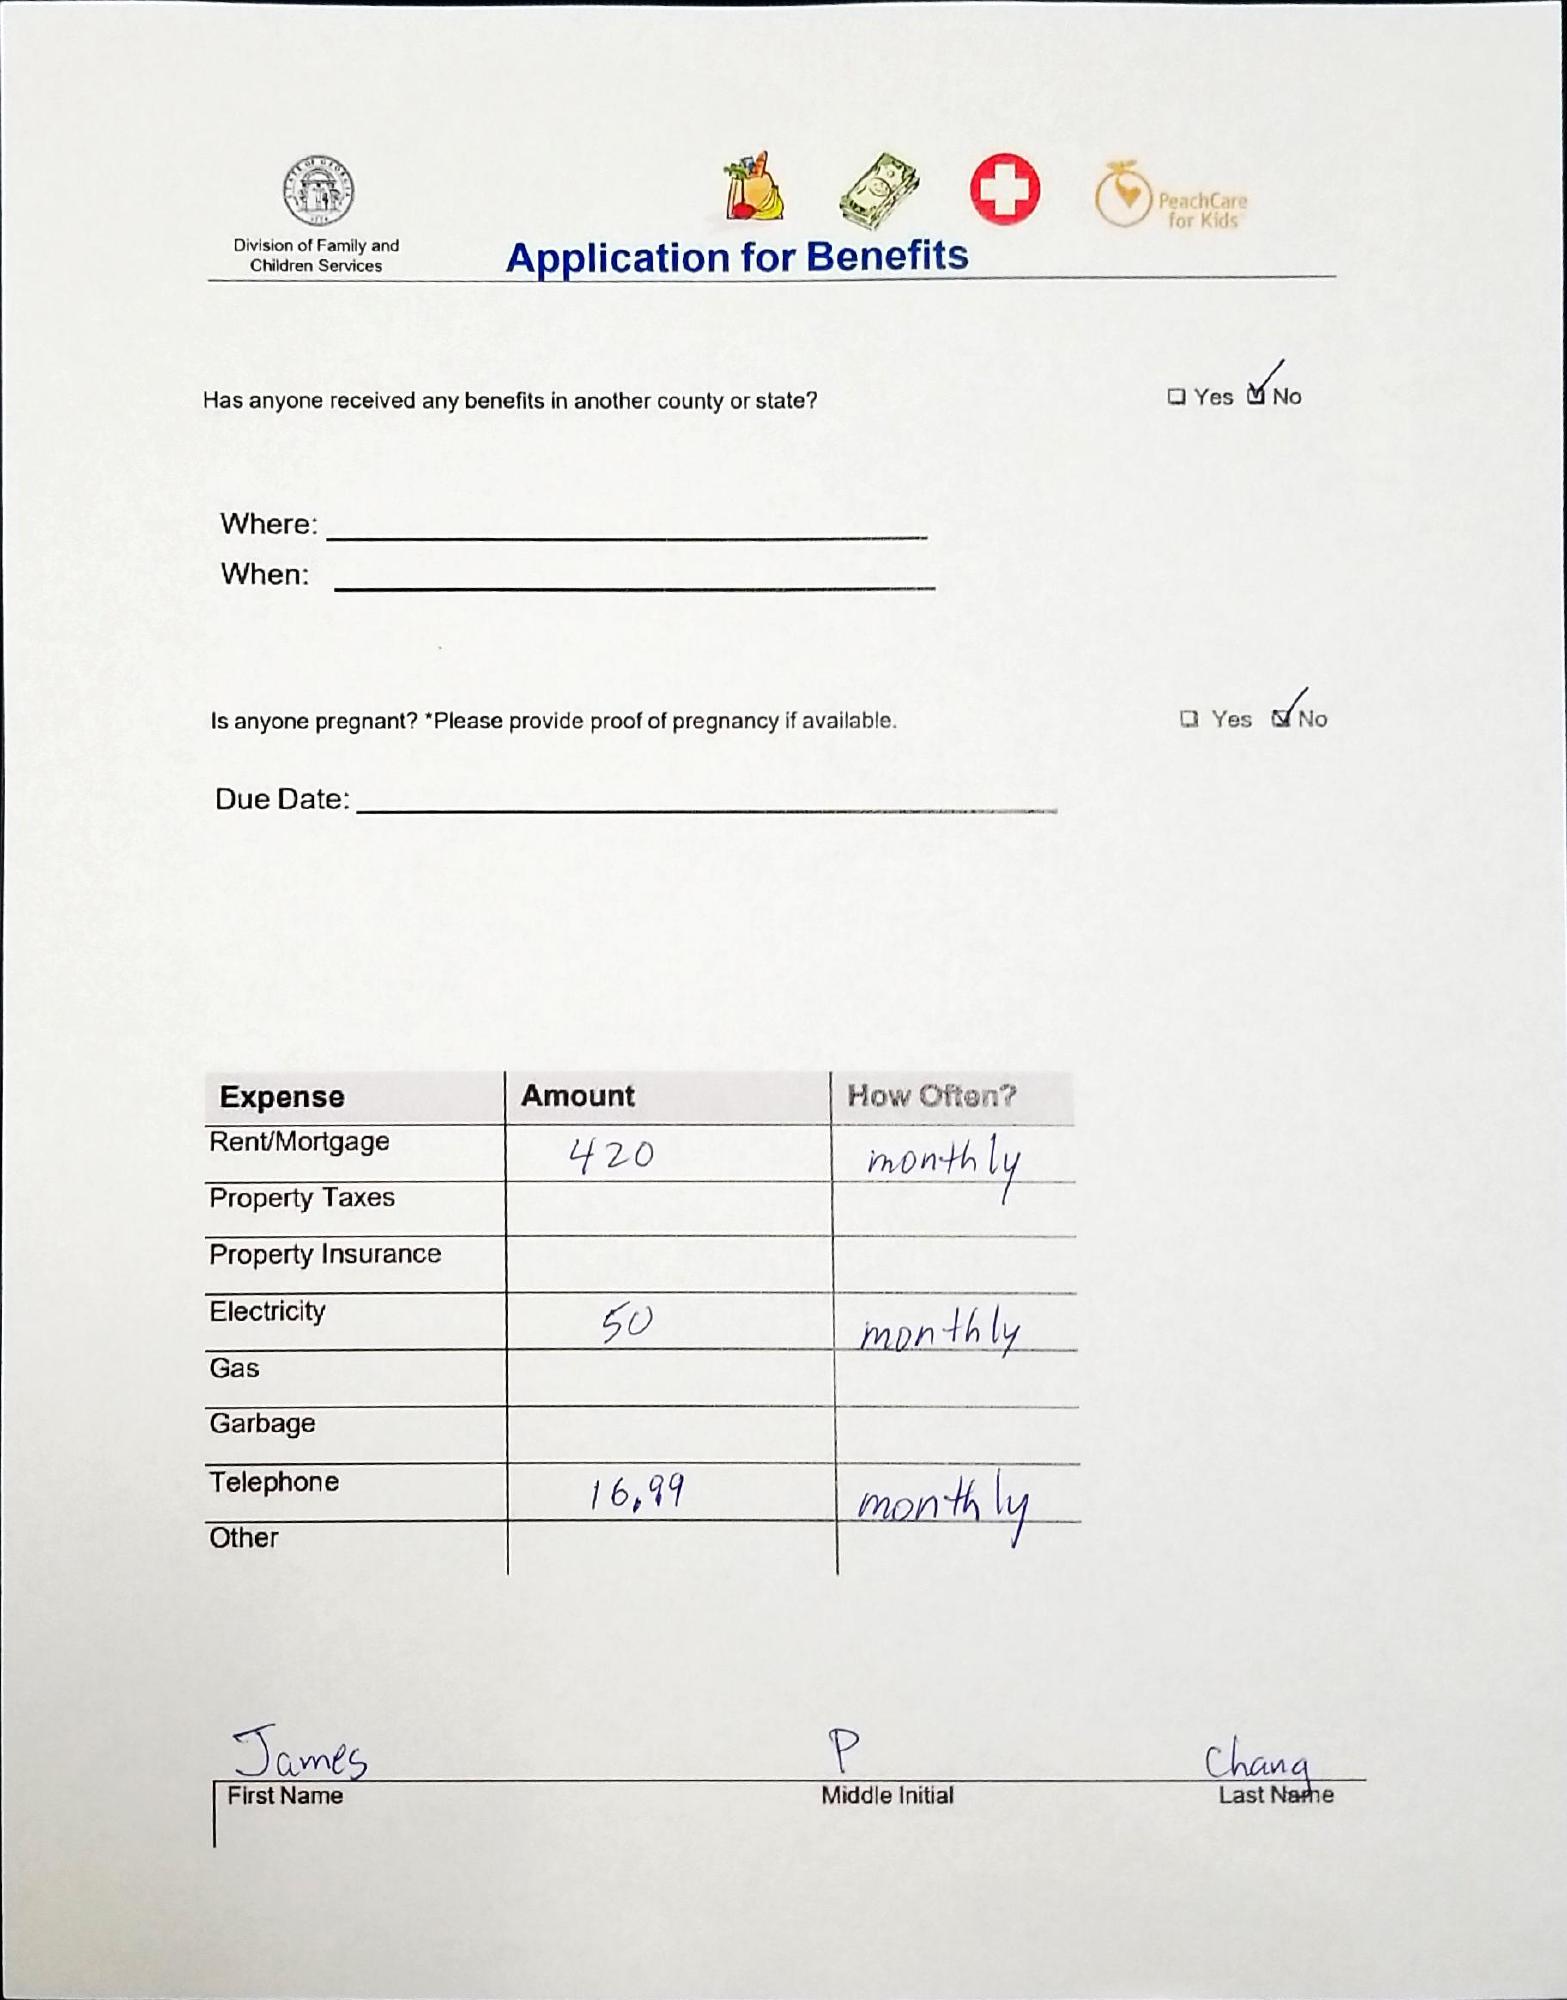 STATE OF GEORGIA
1776
PeachCare
for Kids
Division of Family and
Children Services
Application for Benefits
Has anyone received any benefits in another county or state? ❑ Yes ☑ No
Where:
When:
Is anyone pregnant? *Please provide proof of pregnancy if available. ❑ Yes ☑ No
Due Date:
Expense Amount How Often?
Rent/Mortgage 420 monthly
Property Taxes
Property Insurance
Electricity 50 monthly
Gas
Garbage
Telephone 16.99 monthly
Other
James P Chang
First Name Middle Initial Last Name